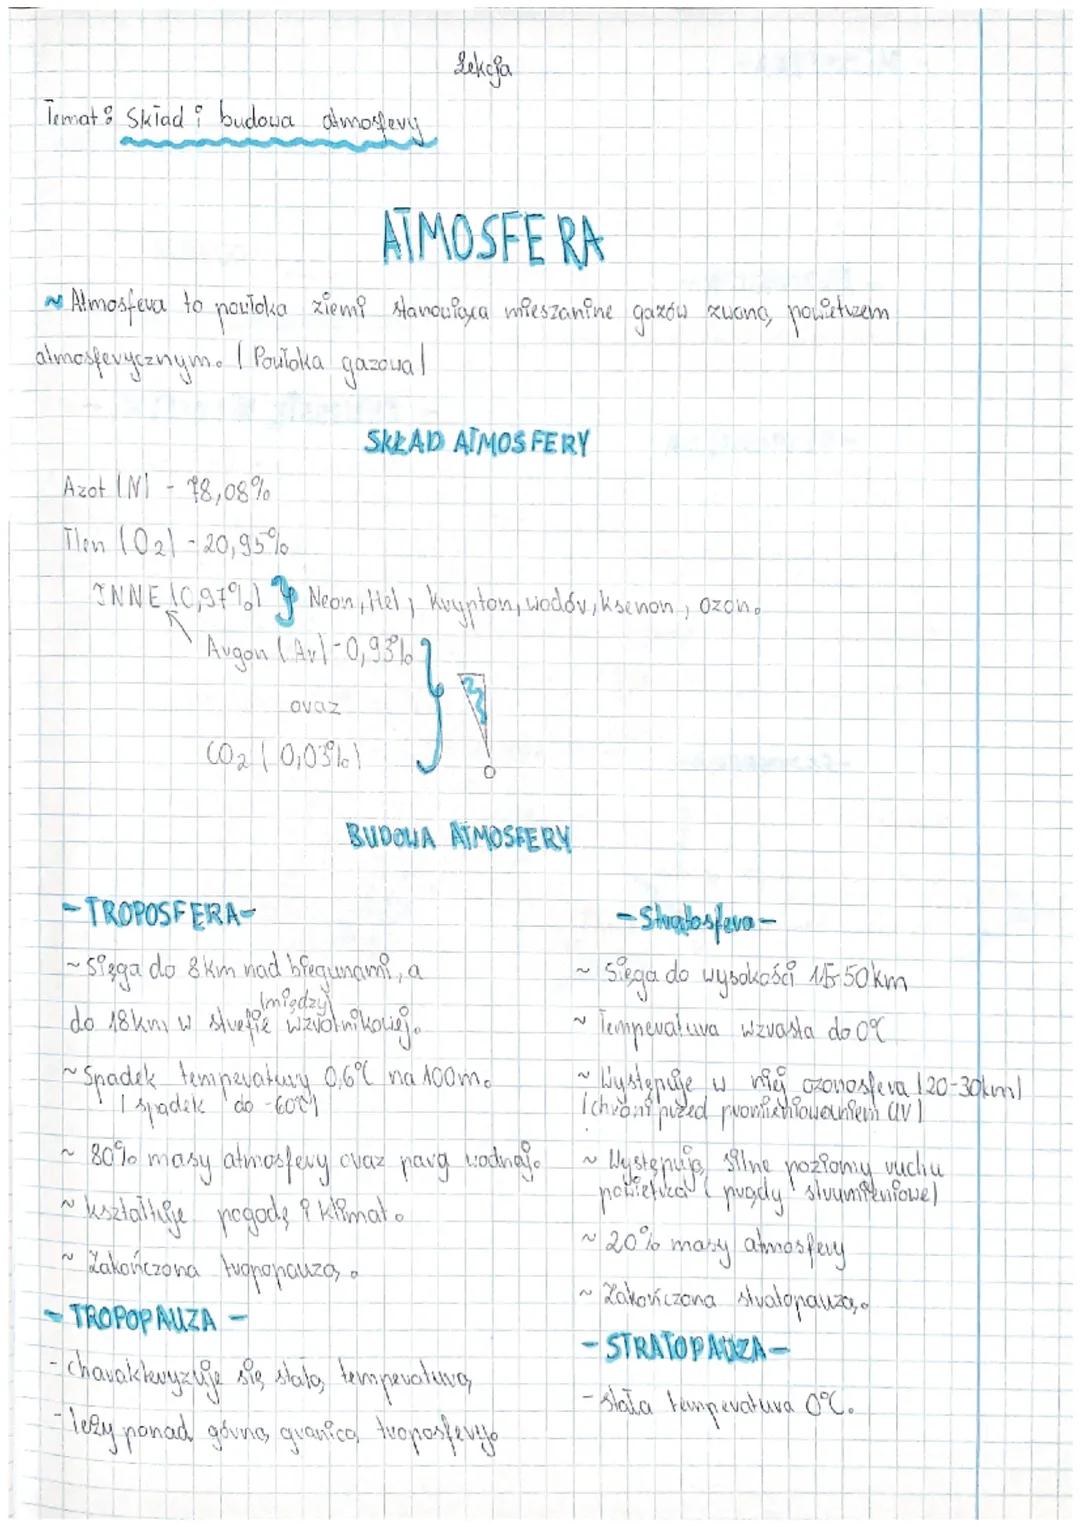 Lekcja
Temat: Skład i budowa atmosfery
ATMOSFERA
~ Atmosfera to powłoka ziemi stanowiąca mieszanine gazów zwaną powietrzem
atmosferycznym. (Powłoka gazowa)
SKŁAD ATMOSFERY
Azot (N) - 78,08%
Tlen (O2) - 20,95%
INNE (0,97%) } Neon, Hel, krypton, wodór, ksenon, ozon.
Argon (Ar) - 0,93%
oraz
CO2 (0,03%)
BUDOWA ATMOSFERY
- TROPOSFERA -
~ Sięga do 8km nad biegunami, a
(między)
do 18km w strefie wzrotnikowej.
~ Spadek temperatury 0,6°C na 100m.
(spadek do -60°C)
~ 80% masy atmosfery oraz parą wodną.
~ kształtuje pogodę i klimat.
~ Zakończona tropopauzą.
- TROPOPAUZA -
- charakteryzuje się stałą temperaturą
- leży ponad górną granicą troposfery.
- Stratosfera -
~ Sięga do wysokości 15-50km
~ Temperatura wzrasta do 0°C
~ Występuje w niej ozonosfera (20-30km)
(chroni przed promieniowaniem UV)
~ Występują silne poziomy ruchu
powietrza (prądy strumieniowe)
~ 20% masy atmosfery
~ Zakończona stratopauzą.
- STRATOPAUZA -
- stała temperatura 0°C.